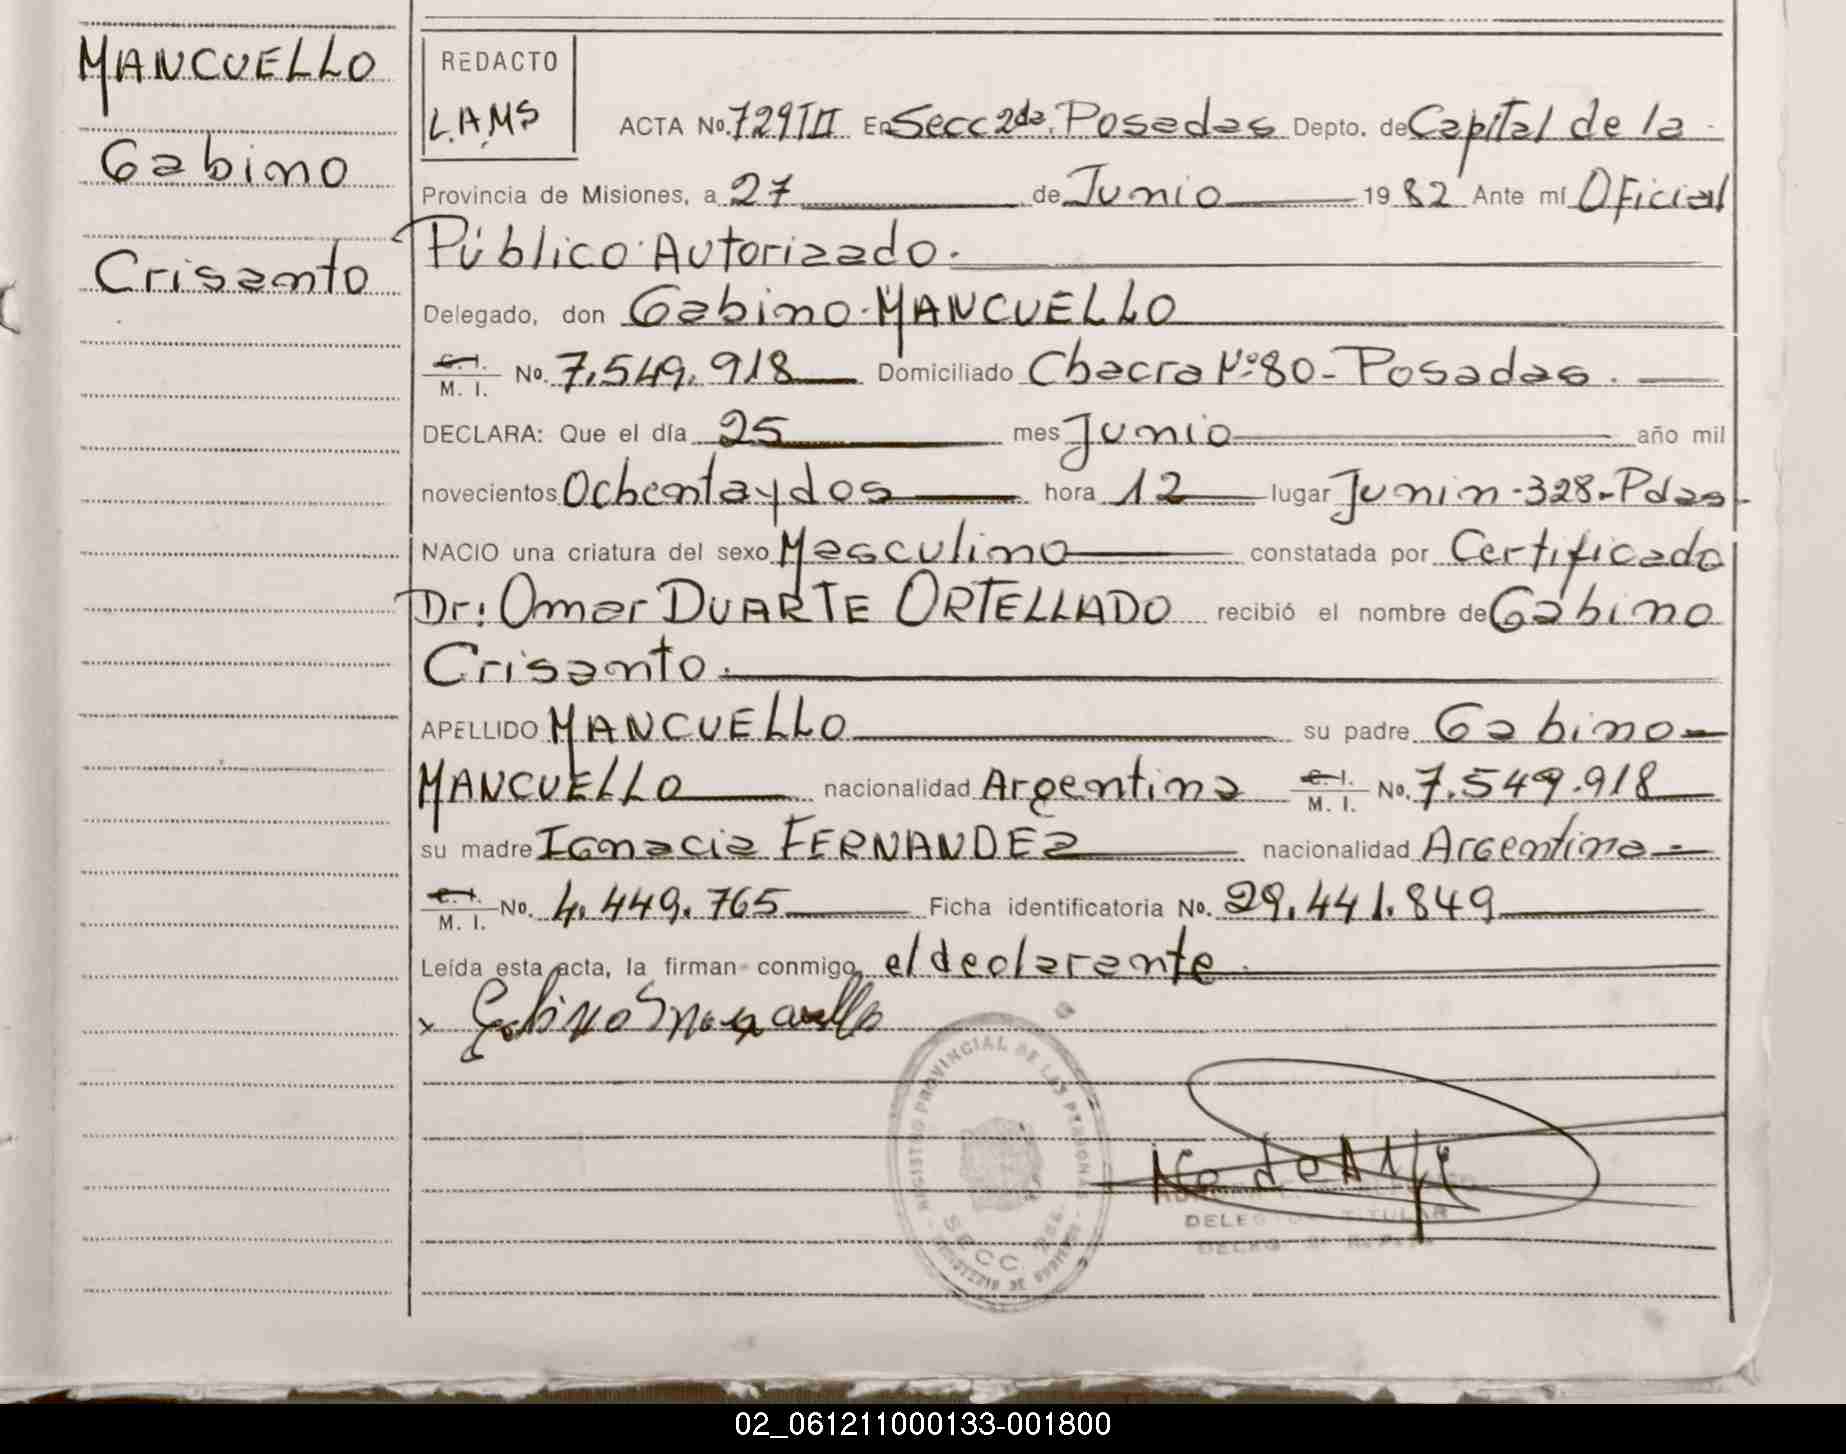 MANCUELLO
Gabino
Crisanto
REDACTO
L.A.M.S
ACTA No. 729 T II En Secc 2da. Posadas Depto. de Capital de la
Provincia de Misiones, a 27 de Junio 19 82 Ante mí Oficial
Público Autorizado.
Delegado, don Gabino MANCUELLO
C. I.
M. I. No. 7.549.918 Domiciliado Chacra Nº 80 - Posadas.
DECLARA: Que el día 25 mes Junio año mil
novecientos Ochenta y dos hora 12 lugar Junin - 328 - Pdas -
NACIO una criatura del sexo Masculino constatada por Certificado
Dr: Omar DUARTE ORTELLADO recibió el nombre de Gabino
Crisanto.
APELLIDO MANCUELLO su padre Gabino
MANCUELLO nacionalidad Argentina C. I. M. I. No. 7.549.918
su madre Ignacia FERNANDEZ nacionalidad Argentina
C. I.
M. I. No. 4.449.765 Ficha identificatoria No. 29.441.849
Leída esta acta, la firman conmigo, el declarante.
x Gabino Mancuello
REGISTRO PROVINCIAL DE LAS PERSONAS
SECC. 2da.
MINISTERIO DE GOBIERNO
DELEGADO TITULAR
02_061211000133-001800